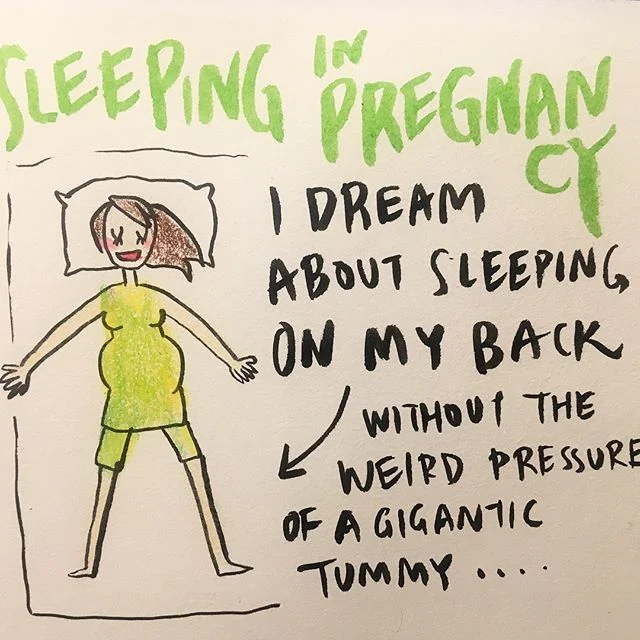 SLEEPING IN PREGNAN
CY
I DREAM
ABOUT SLEEPING
ON MY BACK
WITHOUT THE
WEIRD PRESSURE
OF A GIGANTIC
TUMMY ....